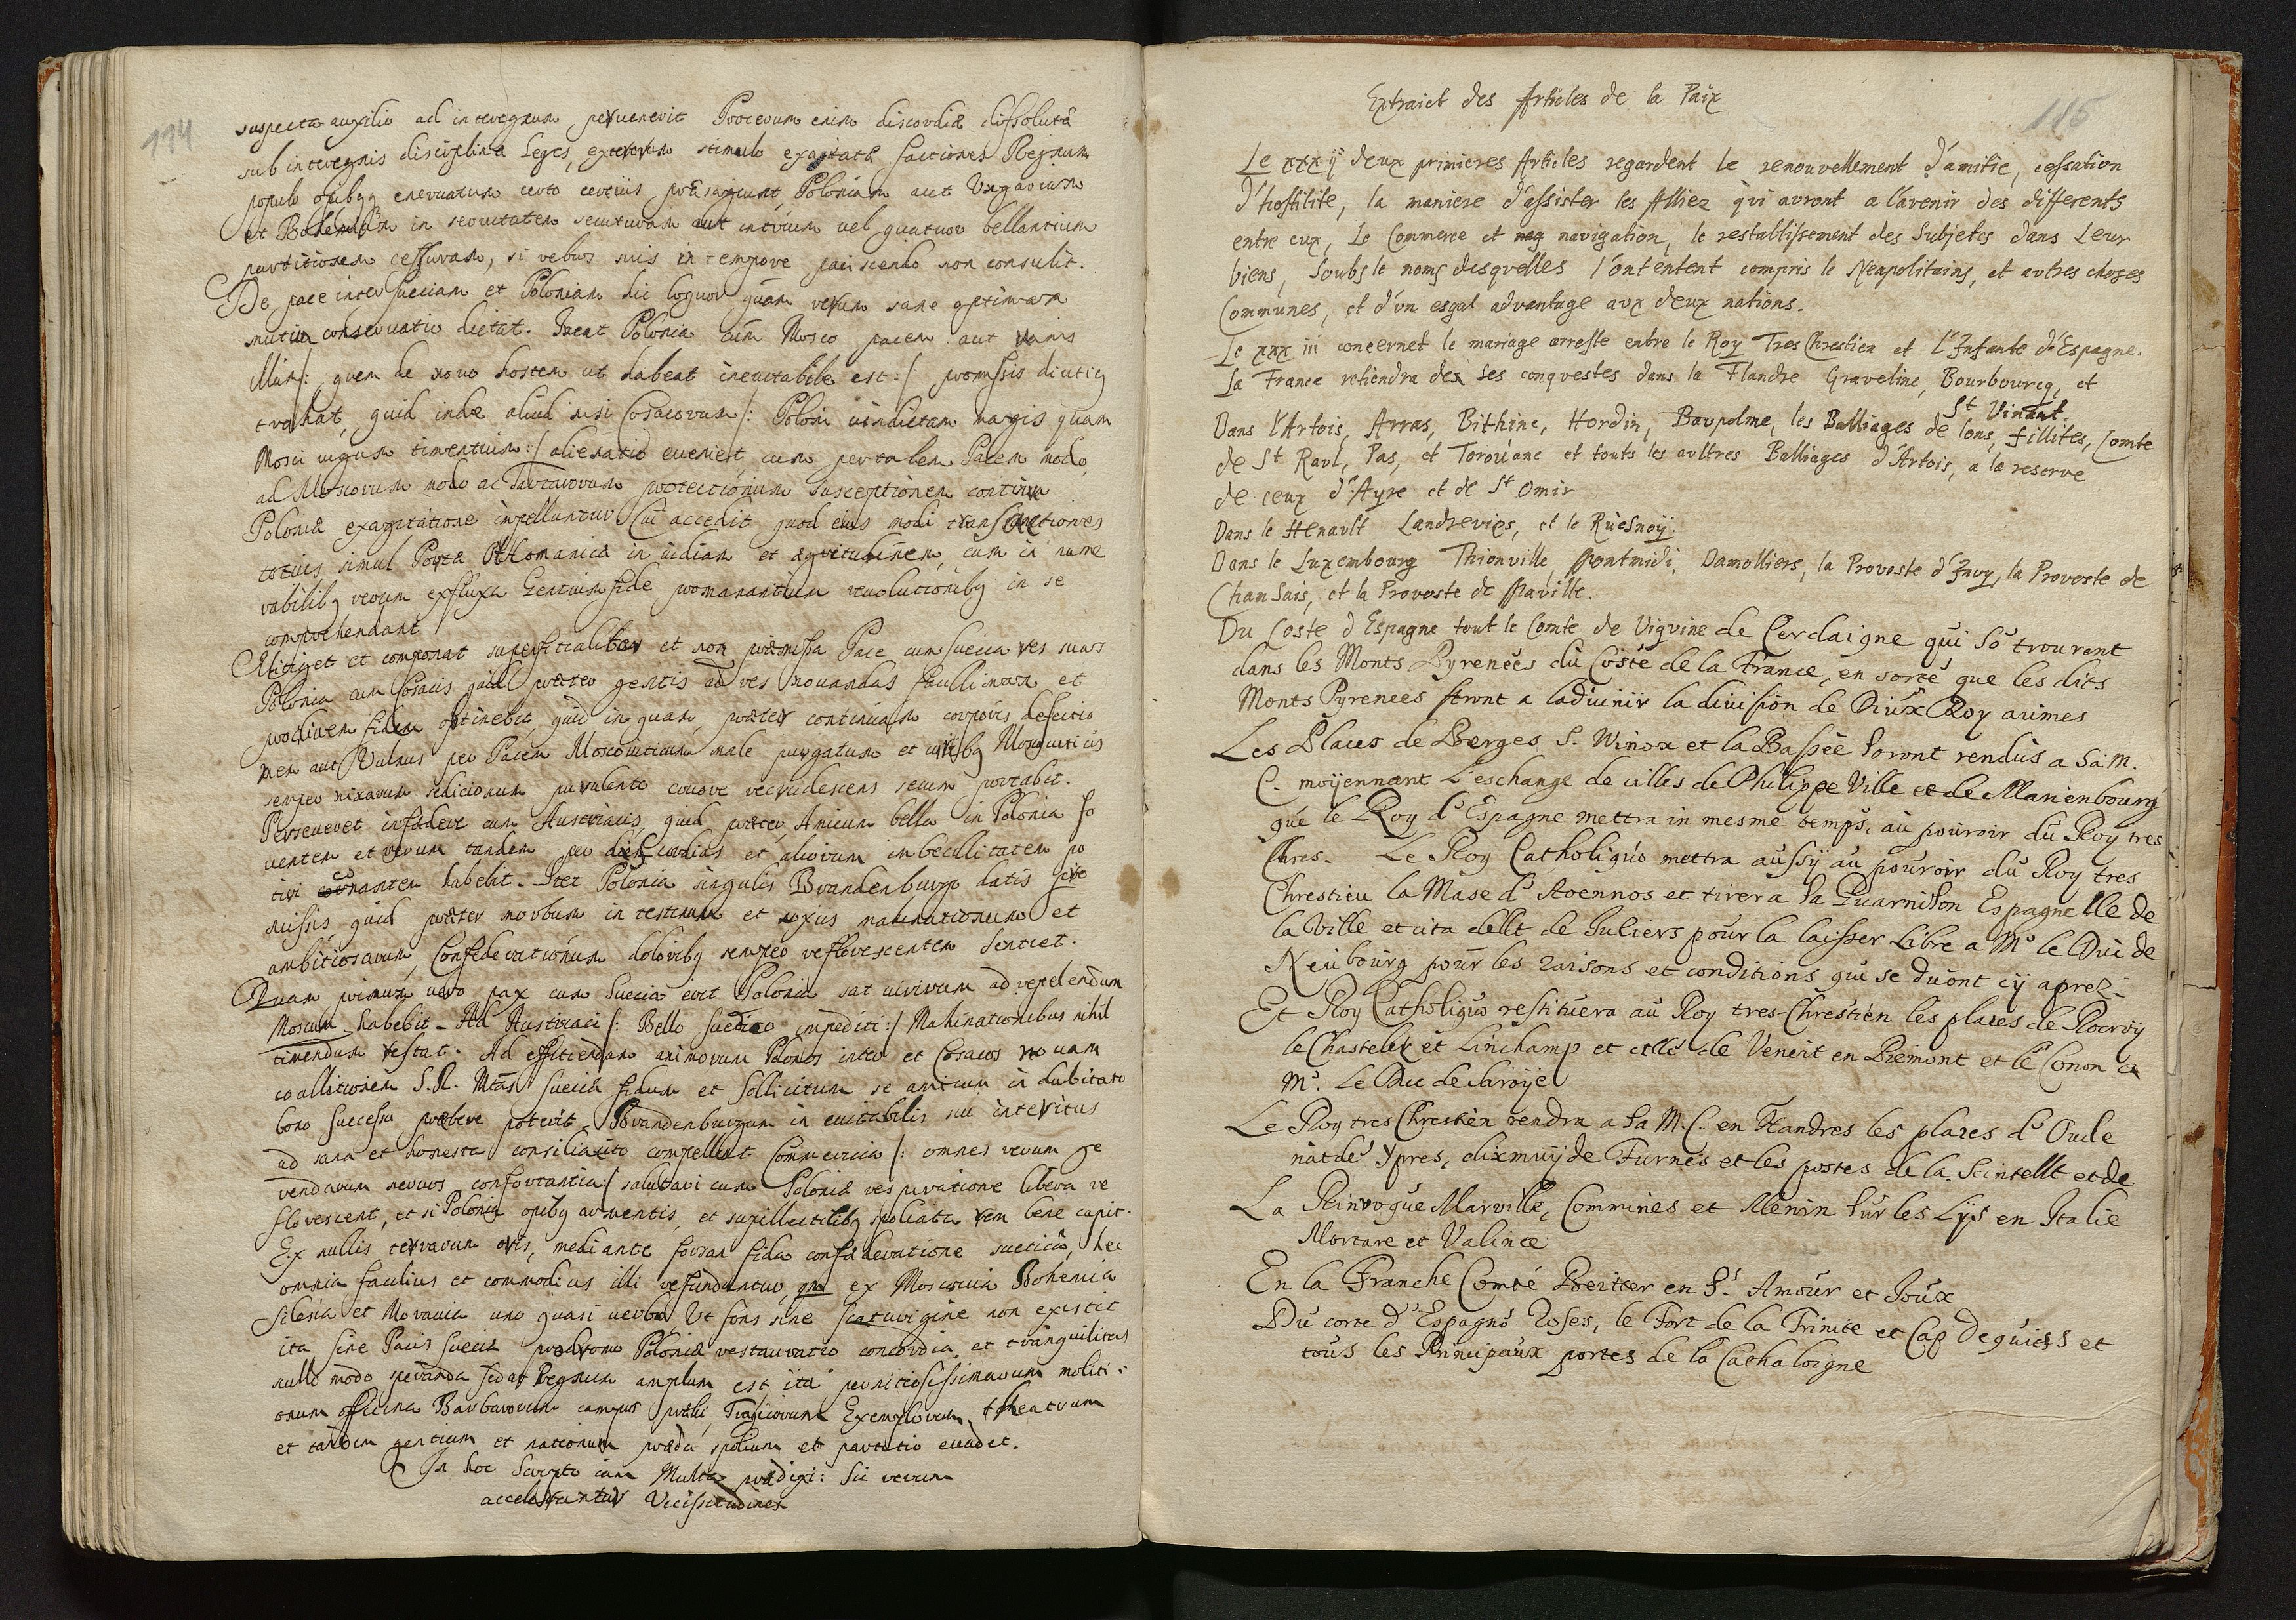 114
suspecta auxilio ad interregnum pervenerit Procerum enim discordia dissoluta
sub interregnis disciplina Leges, externum stimulo exagitatæ factiones Regnum
populo opibusque enervatum certo certius præsagiunt, Poloniam aut Ungariam
et Bohemiam in servitutem secuturam aut in trium vel quatuor bellantium
partitionem cessuram, si rebus suis in tempore paciscendo non consulit.
De pace inter Sueciam et Poloniam hic loquor quam rerum sane optimam
mutua conservatio dictat. Ineat Polonia cum Mosco pacem aut vanis
illum /: quem de novo hostem ut habeat inevitabile est :/ promissis diutius
trahat, quid inde aliud nisi Cosacorum /: Poloni vindictam magis quam
Mosci iugum timentium :/ alienatio eveniet, cum per talem Pacem modo
ad Moscorum modo ac Tartarorum protectionum susceptionem continua
Poloniæ exagitatione impelluntur Cui accedit quod eius modi transactiones
totius simul Portæ Ottomanicæ invidiam et ægritudinem, cum in nume
rabilibus rerum exfluxa Gentium fide promanantium revolutionibus in se
comprehendant
Mitiget et componat superficialiter et non præmissa Pace cum Suecia res suas
Polonia cum Cosacis quid præter gentis ad res novandas paullimam et
prodivem fidem obtinebit, quid in quam præter continuam corporis defectio
nem aut Vulnus per Pacem Moscoviticum male purgatum et
semper nixarum sedicionum purulento cruore recrudescens secum portabit.
Perseveret in fœdere cum Austriacis, quid præter Amicum bella in Polonia fo
ventem et rerum tandem per discordias et aliorum imbecillitatem po
tiri conantem habebit. Stet Polonia singulis Brandenburgo datis
missis quid præter morbum intestinum et noxiis machinationum et
ambitiosarum Confederationum doloribus semper reflorescentem sentiet.
Quam primum vero pax cum Suecia erit Polonia sat virium ad repellendum
Moscum habebit - Ab Austriaci /: Bello Suedico impediti :/ Mahinationibus nihil
timendum restat. Ad efficiendam animorum Polonos inter et Cosacos novam
coallitionem S. R. Mtas Sueciæ fidum et sollicitum se amicum in dubitato
bono successu præbere poterit. Brandenburgum inevitabilis sui interitus
ad sana et honesta consilia cito compellet Commercia /: omnes rerum ge
rendarum nervos confortantia :/ salutari cum Poloniæ respiratione libera re
florescent, et si Polonia opibus armentis, et supillectilibus spoliata rem bene capit.
Ex nullis terrarum oris, mediante forsan fida confœderatione suetica, hæc
omnia facilius et commodius illi refunduntur, quam ex Moscovia Bohemia
Silesia et Moravia uno quasi verbo Ut fons sine scaturigine non existit
ita sine Pacis Sueciæ prodromo Poloniæ restauratio concordia et tranquilitas
nullo modo speranda sed ut Regnum amplum est, ita perniciosissimarum moliti:
onum officina Barbarorum campus prælii Tragicorum Exemplorum theatrum
et tandem gentium et nationum præda spolium et partitio evadet.
In hoc Scripto iam Multa prædixi: Sic rerum
accelerantur Vicissitudines
115
Extraict des Articles de la Paix
Le xxx ij deux primieres Articles regardent le renouvellement d'amitie, cessation
d'hostilite, la maniere d'assister les Alliez qui auront a l'avenir des differents
entre eux, Le Commerce et nag navigation, le restablissement des Subjects dans Leur
biens, Soubs le noms desquelles l'ont entent compris le Neapolitains, et autres choses
Communes, et d'un esgal advantage aux deux nations.
Le xxx iii concernet le mariage arreste entre le Roy Tres Chrestien et l'Infante d'Espagne.
La France retiendra des ses conquestes dans la Flandre Graveline, Bourbourcq, et
St Vinant.
Dans l'Artois, Arras, Bithine, Hordin, Baupolme, les Balliages de lens, fillites, Comte
de St Raul, Pas, et Torouane et touts les aultres Balliages d'Artois, a la reserve
de ceux d'Ayre et de St Omir
Dans le Henault Landrevies, et le Ruesnoÿ.
Dans le Luxembourg Thionville Montmidi, Damolliers, la Provoste d'Juvy, la Provoste de
Chansais, et la Provoste de Maville.
Du Coste d'Espagne tout le Comte de Viguine de Cerdaigne qui so trouvent
dans les Monts Pyreneés du Costé de la France, en sorte que les dits
Monts Pyrenees stront a ladvinir la division de Diux Roy aumes
Les Places de Berges S. Winox et la Bassée soront rendus a Sa M.
C. moÿennant L'eschange de cilles de Philippe Ville et de Marienbourg
qué le Roy d'Espagne mettra in mesme temps, au pouroir du Roy tres
Chres. Le Roy Catholiguo mettra aussÿ au pouroir du Roy tres
Chrestieu la Mase d'Avennos et tirera sa Quarnison Espagnelle de
la Ville et citadellt de Juliers pour la laisser Libre a Mr le Duc de
Neubourg pour les raisons et conditions qui se duont cÿ aprez.
Et Roy Catholiguo restituera au Roy tres-Chrestien les places de Rocroÿ
le Chastelex et Linchamp et cclle de Veneit en Piemont et le Conon a
Mr. Le Duc de Savoÿe
Le Roy tres Chrestien rendra a Sa M. C. en Flandres les places d'Oude
narde Ypres, dixmuÿde Furnes et les postes de la Scintellt et de
La Reinvogue Marville, Commines et Menin sur les Lys en Italie
Mortare et Valince
En la Franche Comté Beitter en St. Amour et Joux
Du corte d'Espagno Roses, le Fort de la Trinite et Cap de quiers et
tous les Principaux portes de la Cathaloigne